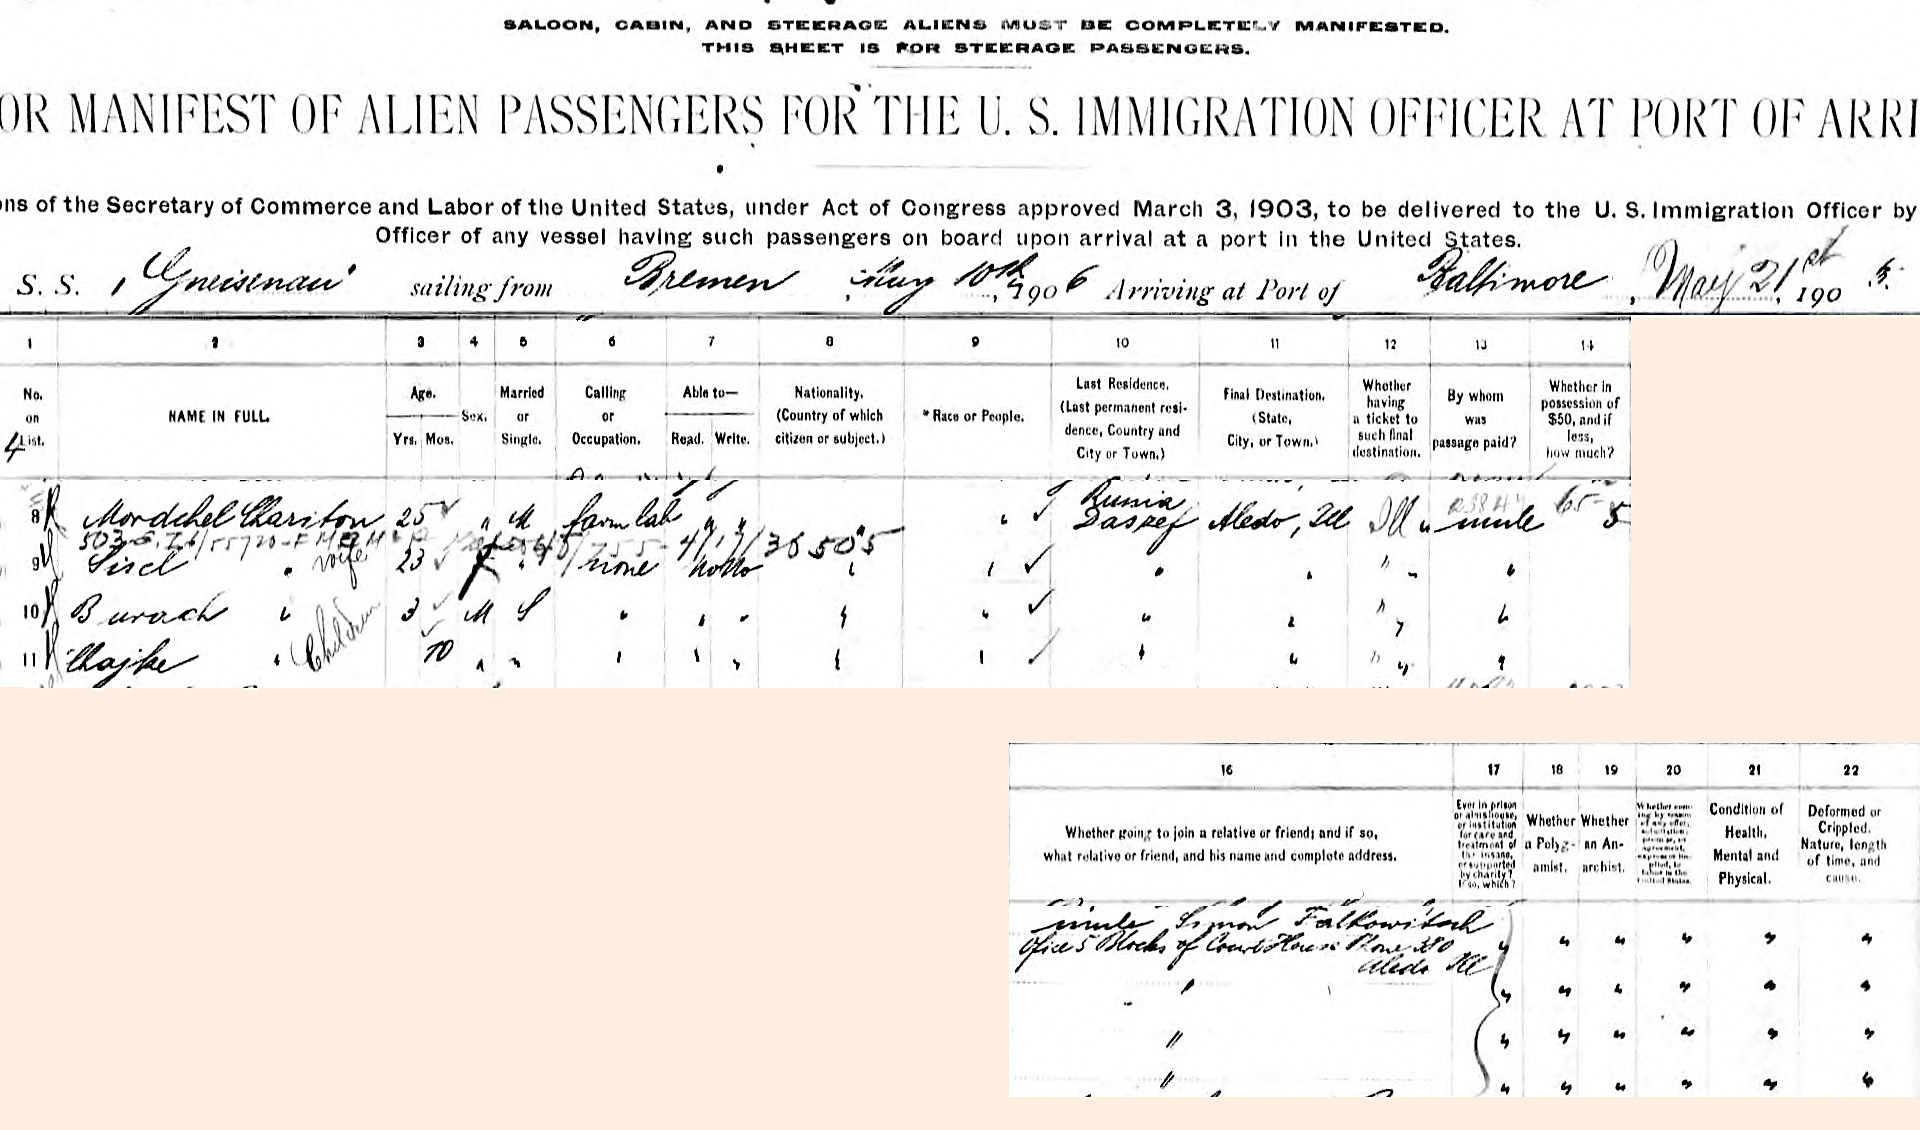 SALOON, CABIN, AND STEERAGE ALIENS MUST BE COMPLETELY MANIFESTED.
THIS SHEET IS FOR STEERAGE PASSENGERS.
OR MANIFEST OF ALIEN PASSENGERS FOR THE U. S. IMMIGRATION OFFICER AT PORT OF ARRI
ons of the Secretary of Commerce and Labor of the United States, under Act of Congress approved March 3, 1903, to be delivered to the U. S. Immigration Officer by
Officer of any vessel having such passengers on board upon arrival at a port in the United States.
S. S. "Gneisenau" sailing from Bremen, May 10th, 1906 Arriving at Port of Baltimore, May 21st, 190
1 2 3 4 5 6 7 8 9 10 11 12 13 14
No. on List.
NAME IN FULL.
Age. Yrs. Mos.
Sex.
Married or Single.
Calling or Occupation.
Able to— Read. Write.
Nationality. (Country of which citizen or subject.)
*Race or People.
Last Residence. (Last permanent residence, Country and City or Town.)
Final Destination. (State, City, or Town.)
Whether having a ticket to such final destination.
By whom was passage paid?
Whether in possession of $50, and if less, how much?
4
8 Mordchel Chariton 25 " M farm lab " " " Russia Aledo, Ill Ill " 5
9 Sisel " wife 23 f " none no no " " " " " " "
10 Burach " 3 M S " " " " " " " " " "
Children
11 Chajke " 10 " " " " " " " " " " " "
16 17 18 19 20 21 22
Whether going to join a relative or friend; and if so, what relative or friend, and his name and complete address.
Ever in prison or almshouse, or institution for care and treatment of the insane, or supported by charity? If so, which?
Whether a Polygamist.
Whether an Anarchist.
Condition of Health, Mental and Physical.
Deformed or Crippled. Nature, length of time, and cause.
Simon Falkowitsch
5 Blocks of Court House Phone 380 " " " " " "
Aledo Ill
" " " " " " "
" " " " " " "
" " " " " " "